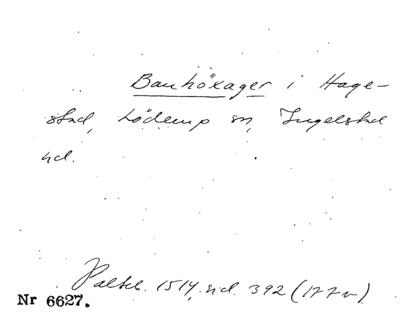 Bauhöxager i Hage-
stad, Löderup sn, Ingelstad
hd.
Palteb. 1514, sid. 392 (177v).
Nr 6627.